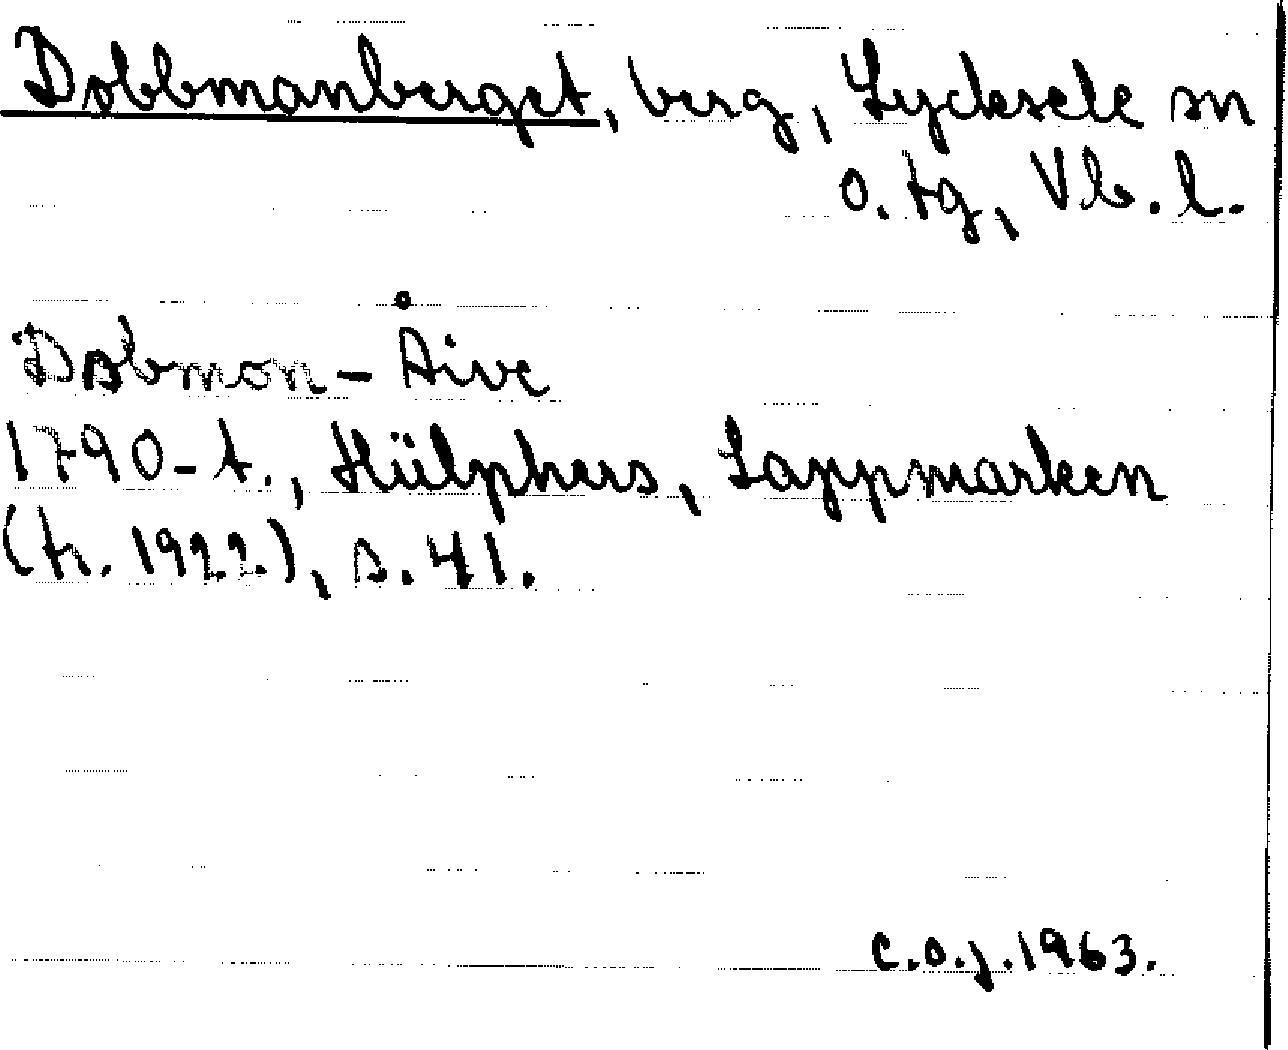 Dobbmanberget, berg, Lycksele sn
o. tg, Vb. l.
Dobmon-Åive
1790-t., Hülphers, Lappmarken
(tr. 1922), s. 41.
C.O.J. 1963.